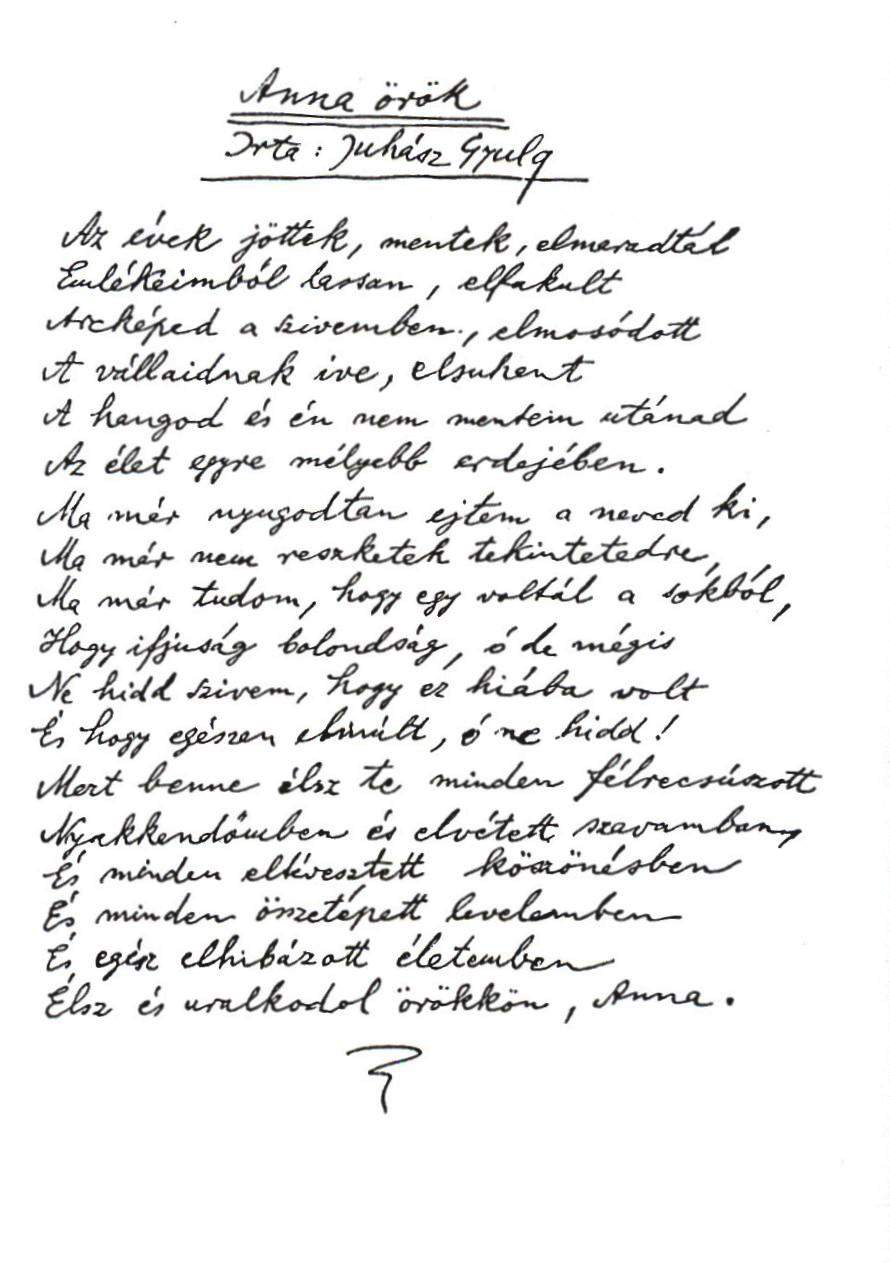 Anna örök
Irta : Juhász Gyula
Az évek jöttek, mentek, elmaradtál
Emlékeimből lassan, elfakult
Arcképed a szivemben, elmosódott
A vállaidnak ive, elsuhent
A hangod és én nem mentem utánad
Az élet egyre mélyebb erdejében.
Ma már nyugodtan ejtem a neved ki,
Ma már nem reszketek tekintetedre,
Ma már tudom, hogy egy voltál a sokból,
Hogy ifjuság bolondság, ó de mégis
Ne hidd szivem, hogy ez hiába volt
És hogy egészen elmúlt, ó ne hidd!
Mert benne élsz te minden félrecsúszott
Nyakkendőmben és elvétett szavamban,
És minden eltévesztett köszönésben
És minden összetépett levelemben
És egész elhibázott életemben
Élsz és uralkodol örökkön, Anna.